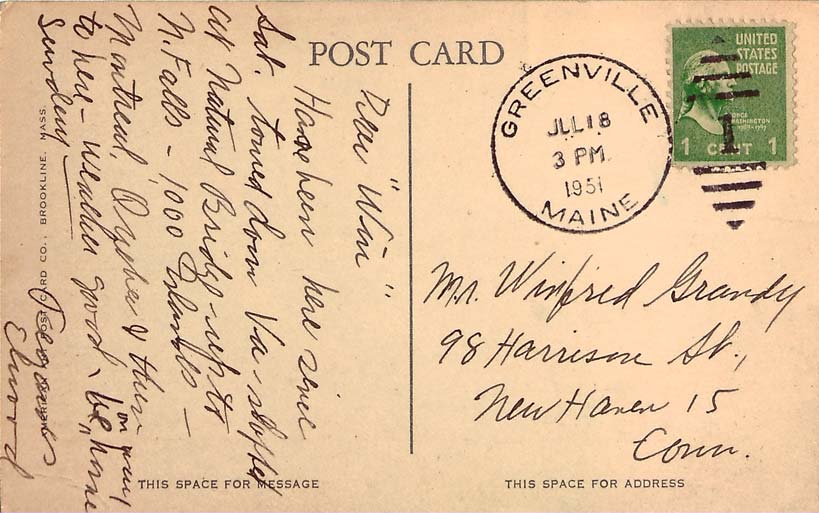 POST CARD
Dear "Win"
Have been here since
Sat. toured down Va - stopped
at Natural Bridge - up to
N. Falls - 1000 Islands -
Montreal, Quebec & then
to here - weather good - be home
on way
Sunday
Regards
Elwood
CARD CO., BROOKLINE, MASS.
THIS SPACE FOR MESSAGE
GREENVILLE
JUL 18
3 PM
1951
MAINE
UNITED
STATES
POSTAGE
WASHINGTON
1 CENT 1
1
Mr. Winfred Grandy
98 Harrison St.,
New Haven 15
Conn.
THIS SPACE FOR ADDRESS